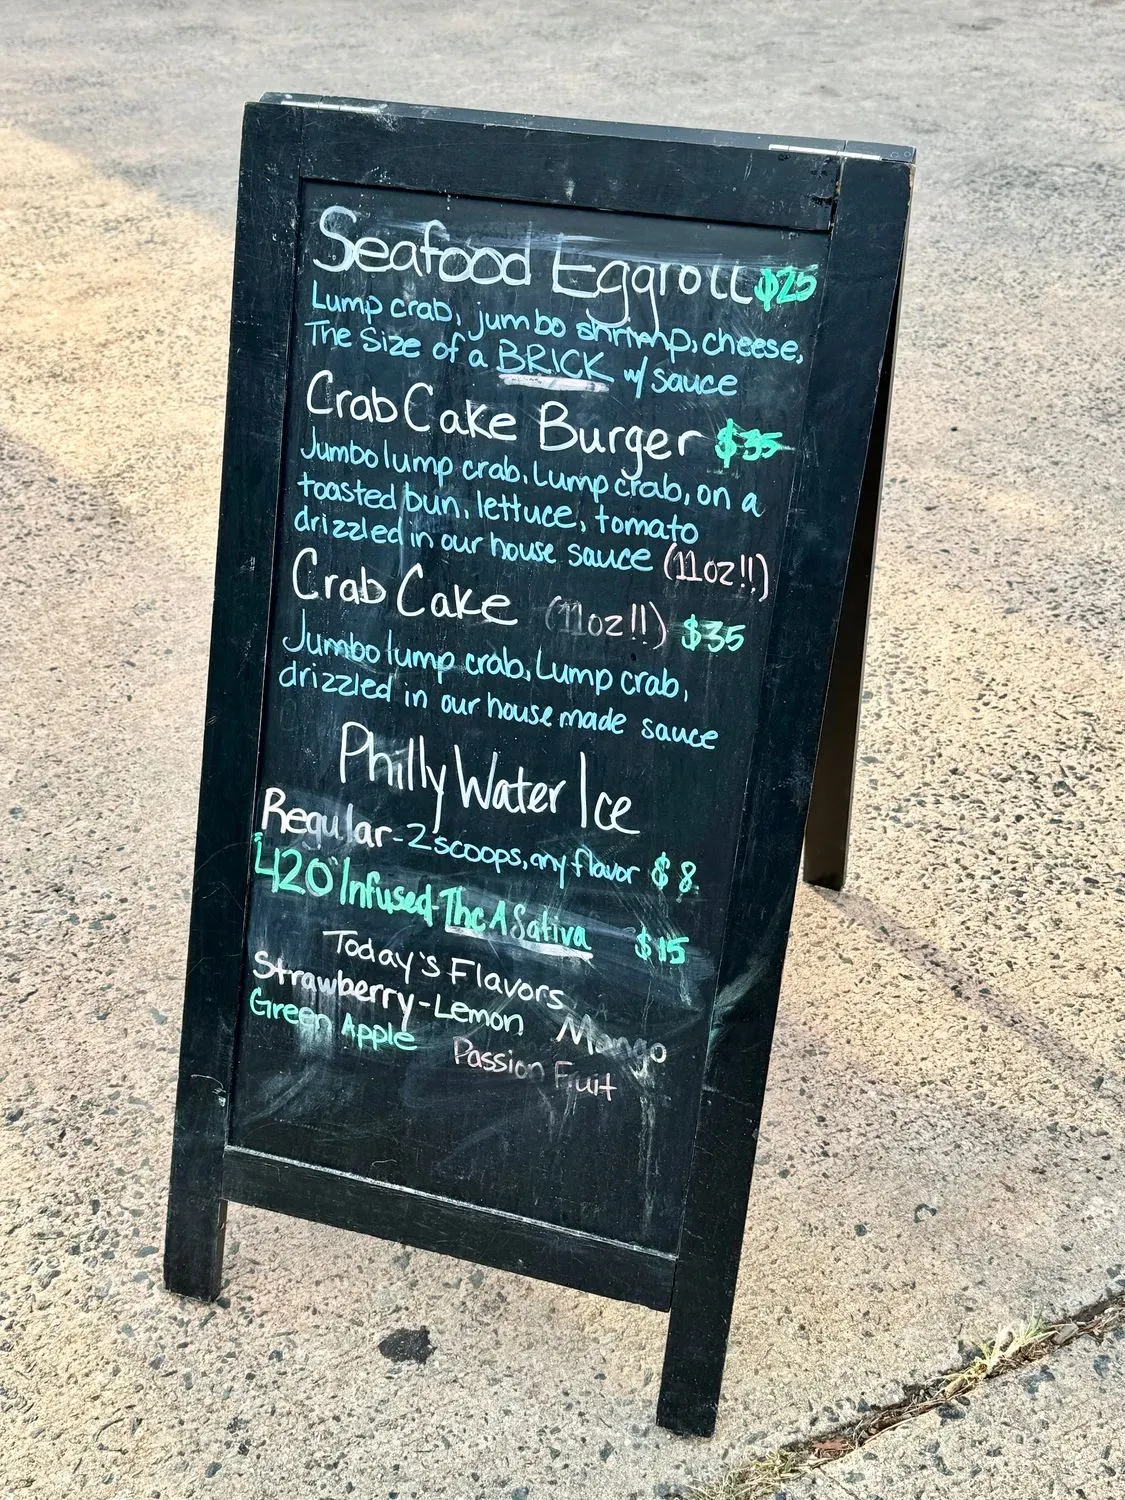 Seafood Eggroll $25
Lump crab, jumbo shrimp, cheese,
The Size of a BRICK w/ sauce
Crab Cake Burger $35
Jumbo lump crab, Lump crab, on a
toasted bun, lettuce, tomato
drizzled in our house sauce (11oz!!)
Crab Cake (11oz!!) $35
Jumbo lump crab, Lump crab,
drizzled in our house made sauce
Philly Water Ice
Regular - 2 scoops, any flavor $8
"420" Infused-Thc A Sativa $15
Today's Flavors
Strawberry-Lemon Mango
Green Apple Passion Fruit